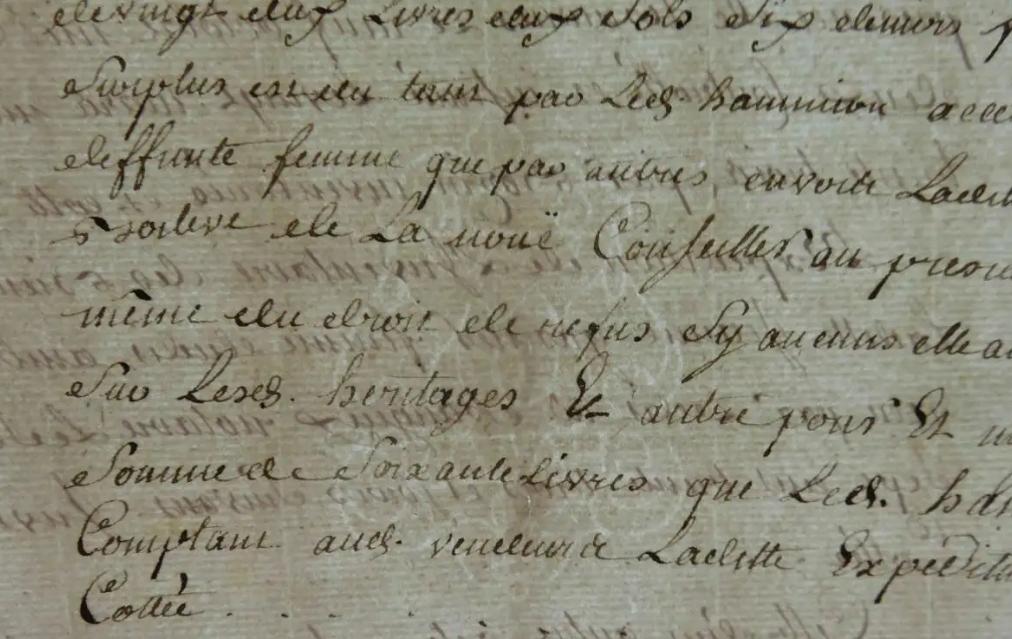 de vingt deux Livres deux Sols Six deniers
Surplus en tant par Led. hammion
deffunte femme que par autres, en vertu
de La noüe Conseiller au
même du droit de refus Sy aucuns elle
Sur Lesd. heritages Et autre pour Et
Somme de Soixante livres que Led.
Comptant aud. vendeur Ladette
Cottée